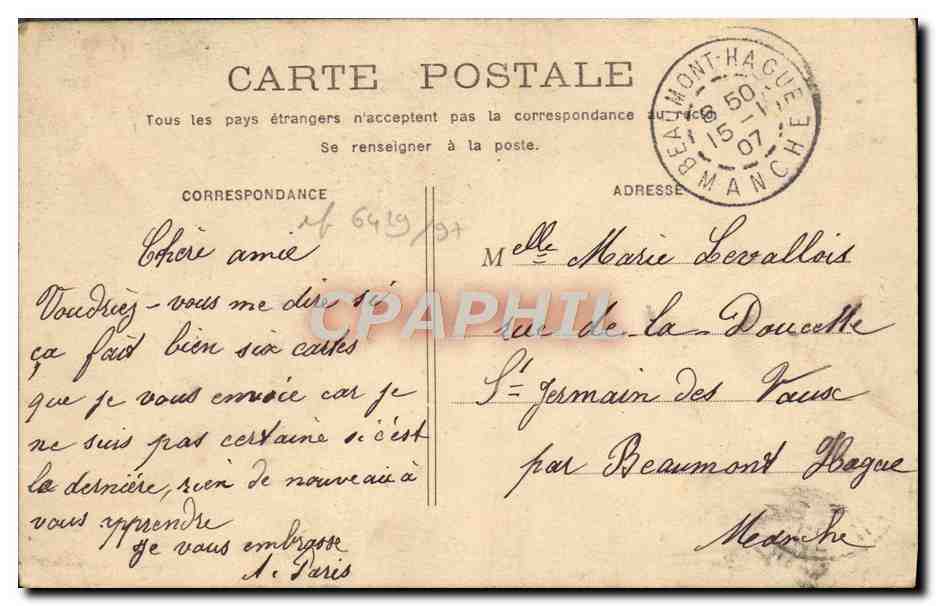 CARTE POSTALE
Tous les pays étrangers n'acceptent pas la correspondance au recto
Se renseigner à la poste.
BEAUMONT-HAGUE
8 50
15 - 1
07
MANCHE
CORRESPONDANCE
ref 6429/97
Chère amie
Voudriez-vous me dire si
ça fait bien six cartes
que je vous envoie car je
ne suis pas certaine si c'est
la dernière, rien de nouveau à
vous apprendre
Je vous embrasse
A. Paris
CPAPHIL
ADRESSE
Melle Marie Levallois
rue de la Doucette
St Germain des Vaux
par Beaumont Hague
Manche